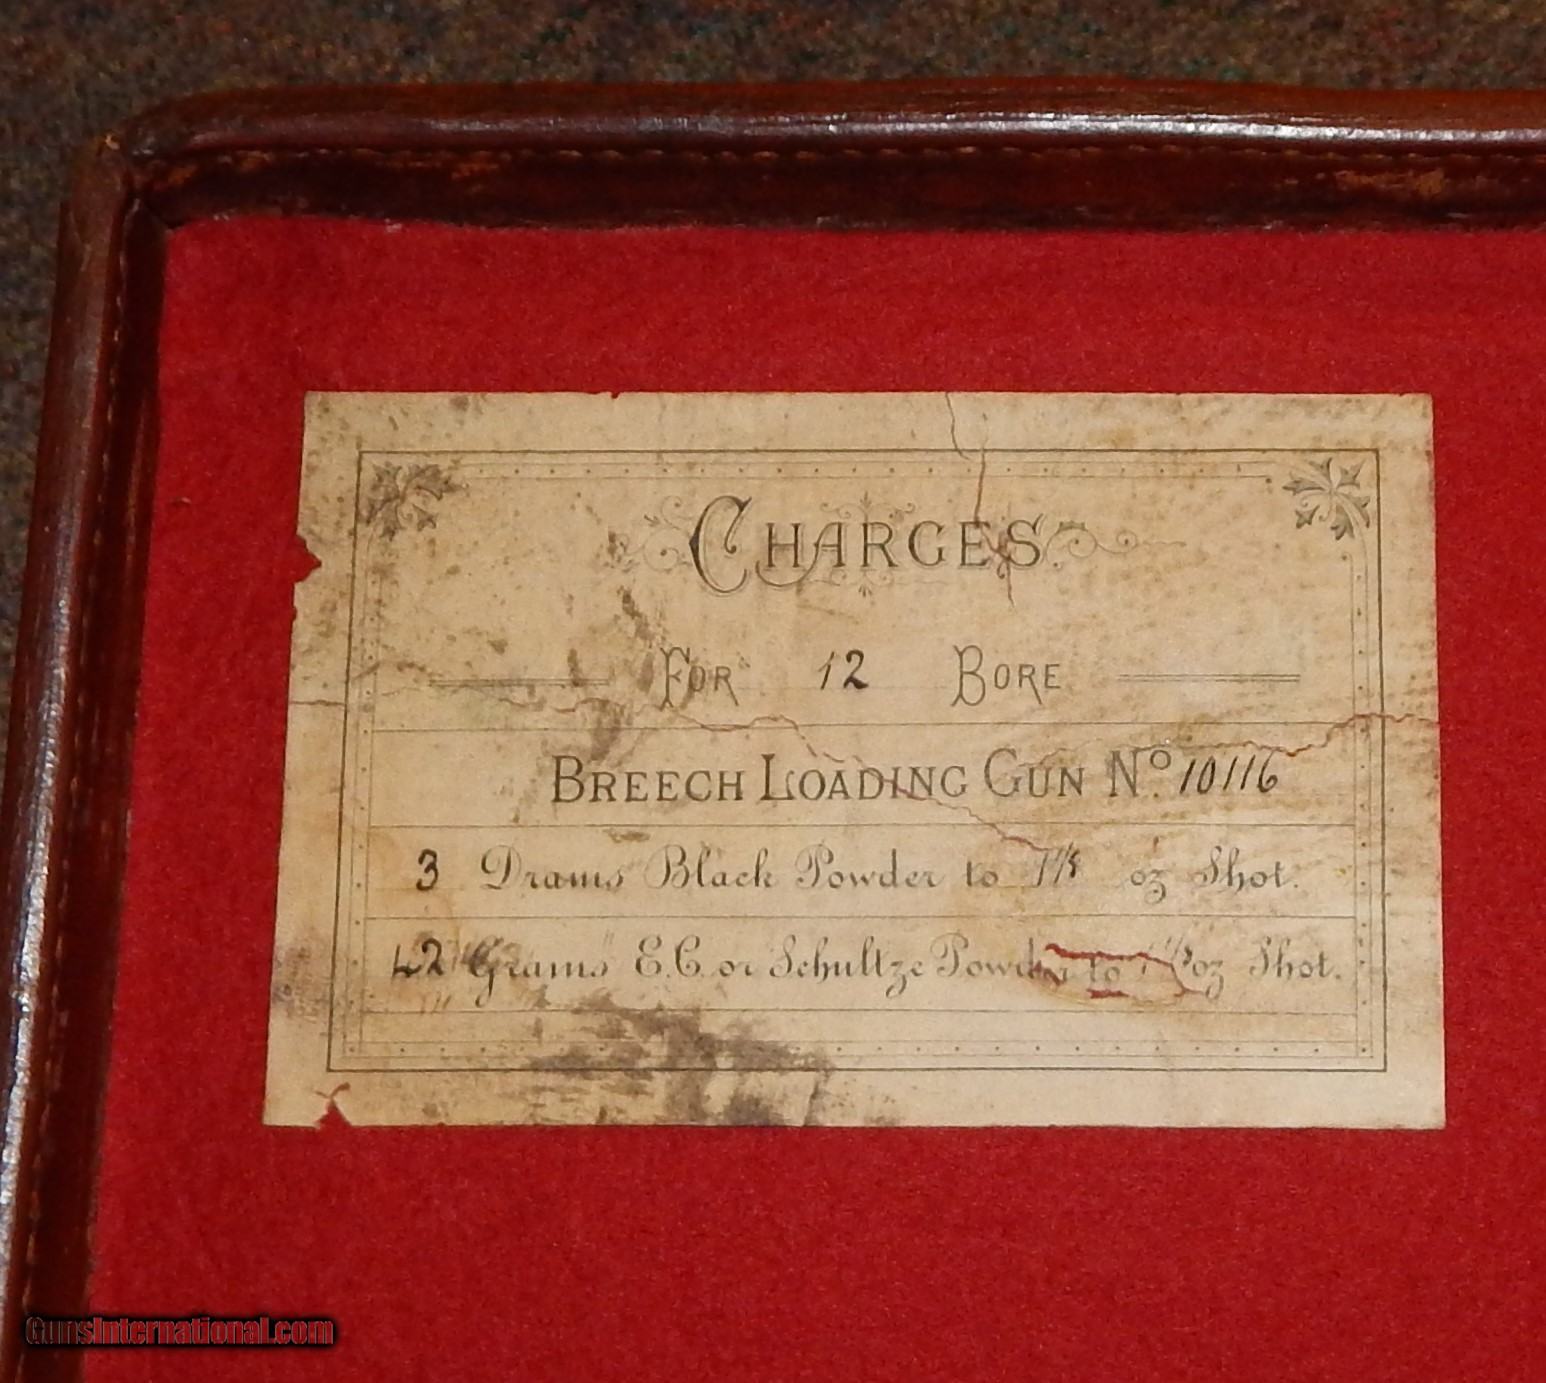 CHARGES.
FOR 12 BORE
BREECH LOADING GUN No. 10116
3 Drams Black Powder to 1 1/8 oz Shot.
42 Grains E.C. or Schultze Powder to oz Shot.
GunsInternational.com